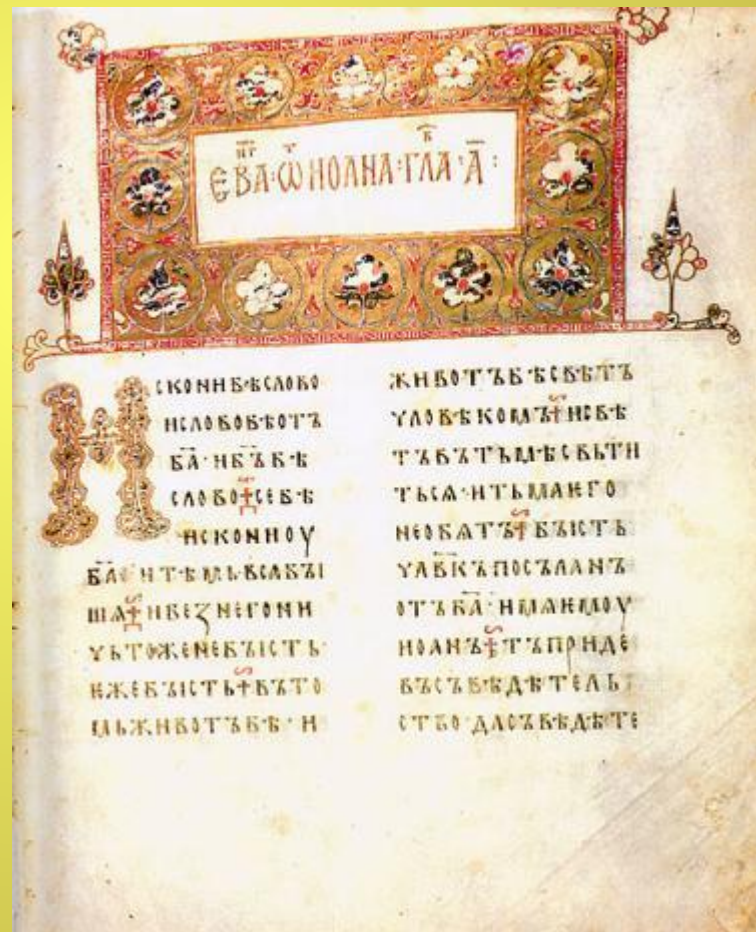 ЕВА·Ѿ ИОАНА·ГЛА·А҃:
ИСКОНИБѢСЛОВО
ИСЛОВОБѢОТЪ
БА҃·ИБЪ҃БѢ
СЛОВО·СЕБѢ
ИСКОНИОУ
БА҃·ИТѢМЬВСꙖБꙐ
ШѦ·ИБЕЗНЕГОНИ
ЧЬТОЖЕНЕБꙐСТЬ·
ЕЖЕБꙐСТЬ·ВЪТО
МЬЖИВОТЪБѢ·И
ЖИВОТЪБѢСВѢТЪ
ЧЛОВѢКОМЪ·ИСВѢ
ТЪВЪТЬМѢСВЬТИ
ТЬСѦ·ИТЬМАѤГО
НЕОБѦТЪ·БꙐСТЬ
ЧЛВ҃КЪПОСЪЛАНЪ
ОТЪБА҃·ИМѦѤМОУ
ИОАНЪ·ТЪПРИДЕ
ВЪСЪВѢДѢТЕЛЬ
СТВО·ДАСЪВѢДѢТЕ